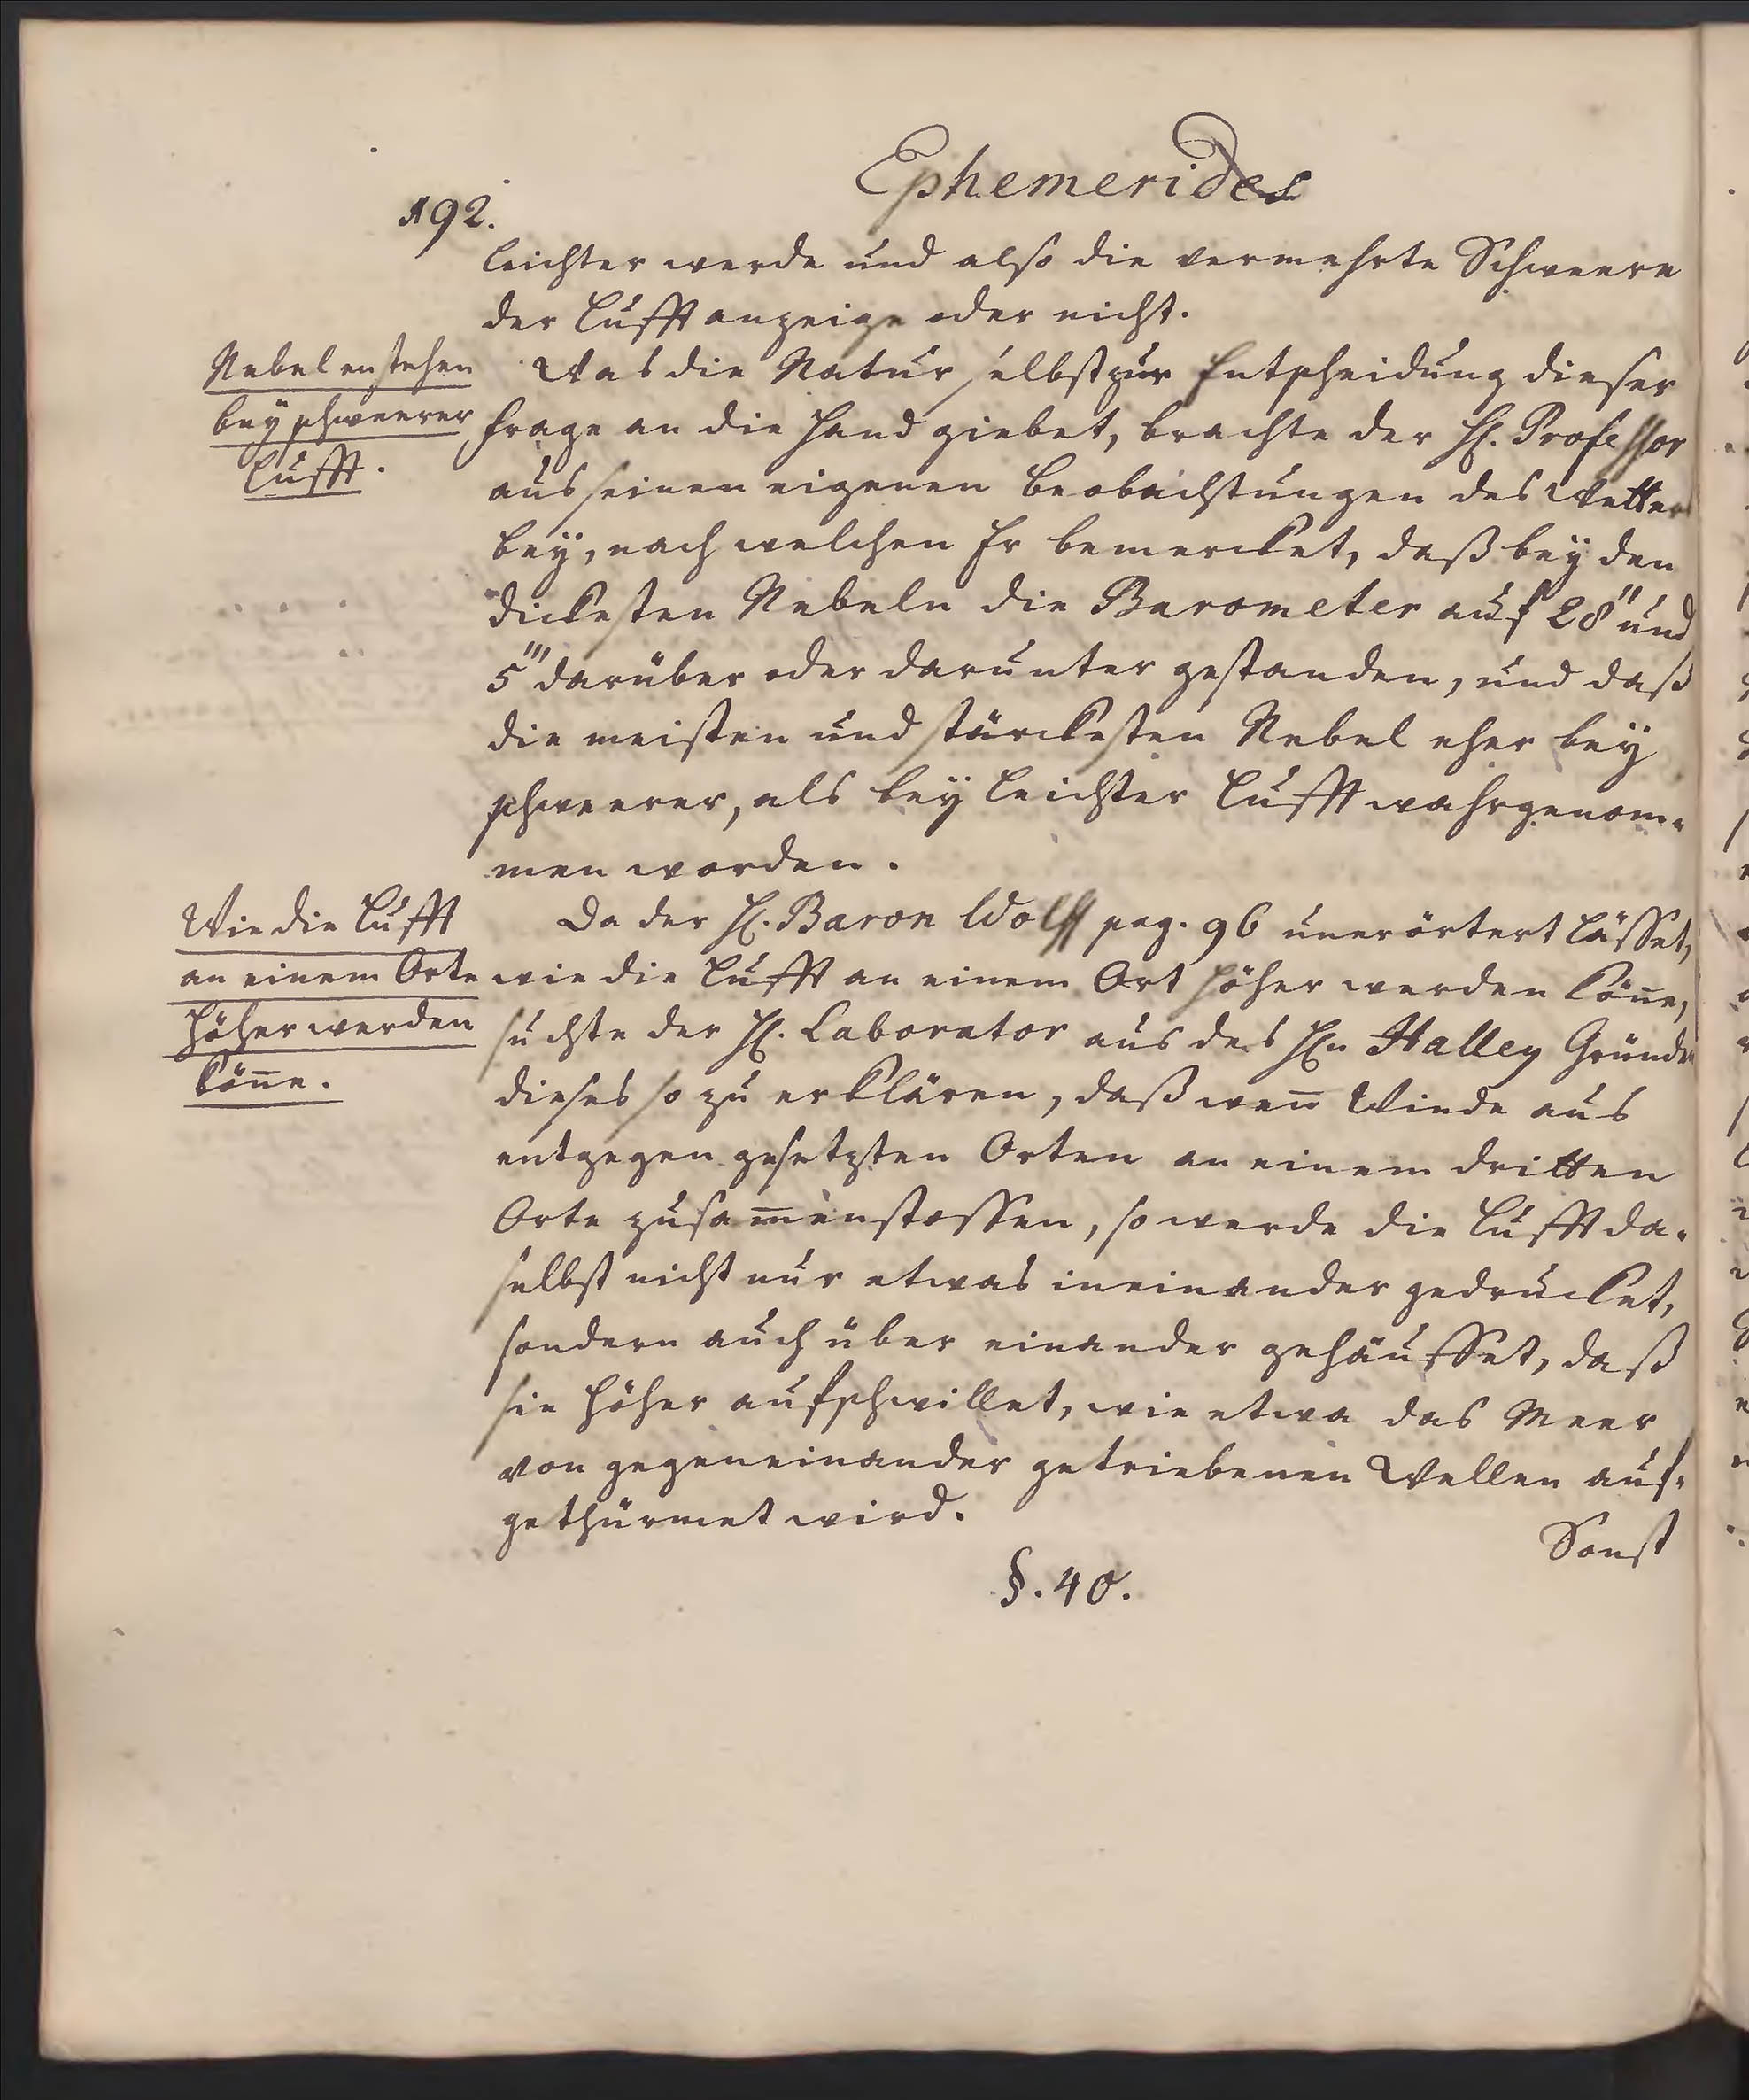 Ephemerides
192.
leichter werde und also die vermehrte Schweere
der Lufft anzeige oder nicht.
Nebel enstehen
bey schweerer
Lufft.
Was die Natur selbst zur Entscheidung dieser
Frage an die Hand giebet, brachte der H. Professor
aus seinen eigenen Beobachtungen des Wetters
bey, nach welchen Er bemercket, daß bey den
dickesten Nebeln die Barometer auf 28'' und
5''' darüber oder darunter gestanden, und daß
die meisten und stärckesten Nebel eher bey
schweerer, als bey leichter Lufft wahrgenom-
men worden.
Wie die Lufft
an einem Orte
höher werden
köñe.
Da der H. Baron Wolff pag. 96 unerörtert lässet,
wie die Lufft an einem Ort höher werden köñe,
suchte der H. Laborator aus des Hn Halley Gründen
dieses so zu erklären, daß weñ Winde aus
entgegen gesetzten Orten an einem dritten
Orte zusam̄enstossen, so werde die Lufft da-
selbst nicht nur etwas ineinander gedrucket,
sondern auch über einander gehäuffet, daß
sie höher aufschwillet, wie etwa das Meer
von gegeneinander getriebenen Wellen auf-
gethürmet wird.
Sonst
§. 40.